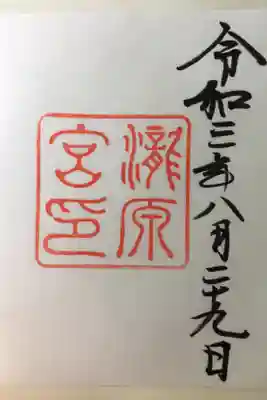 令和三年八月二十九日
瀧原
宮印